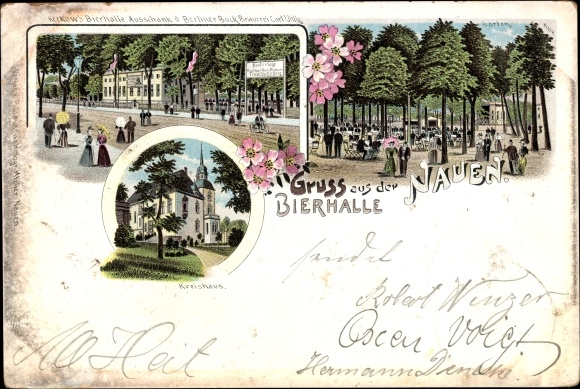 Kerkow's Bierhalle Ausschank d. Berliner Bock Brauerei
Garten
Gruss aus der
BIERHALLE
NAUEN.
Kreishaus.
sendet
Robert Winzer
Oscar Voigt
Hermann
All Heil